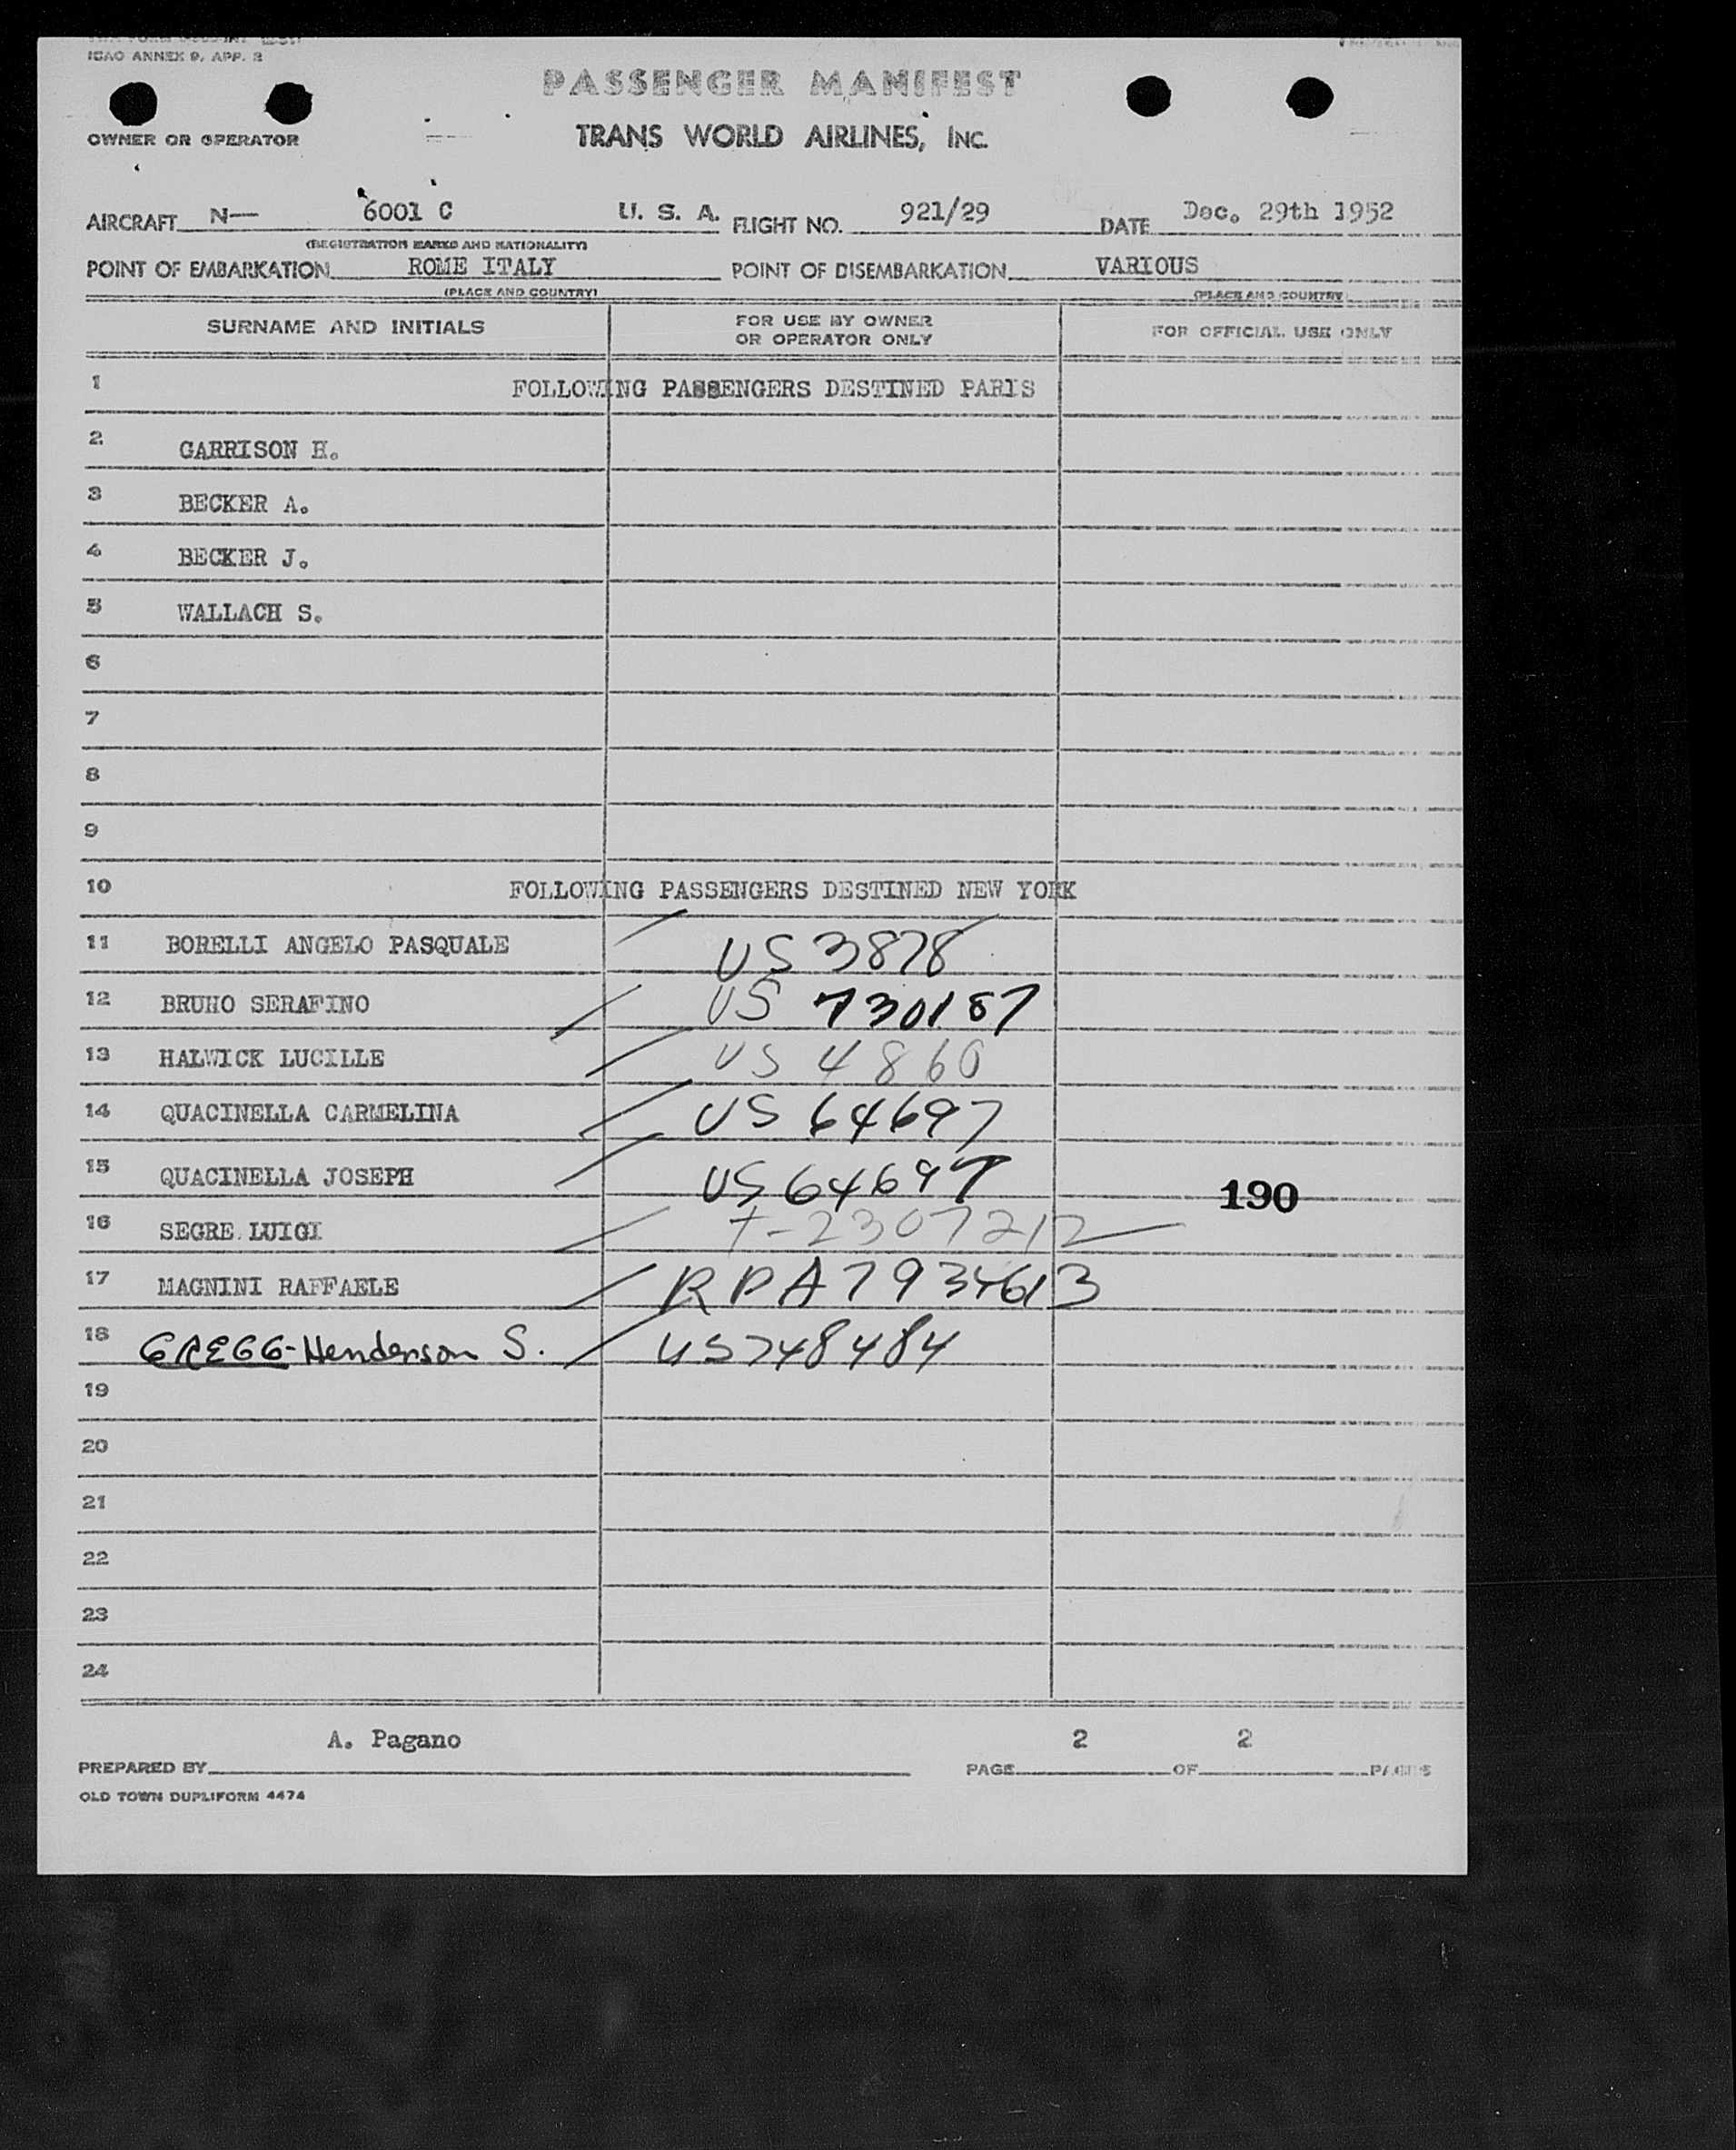 ICAO ANNEX 9, APP. 2
PASSENGER MANIFEST
OWNER OR OPERATOR
TRANS WORLD AIRLINES, INC.
AIRCRAFT N— 6001 C U. S. A. FLIGHT NO. 921/29 DATE Dec. 29th 1952
(REGISTRATION MARKS AND NATIONALITY)
POINT OF EMBARKATION ROME ITALY POINT OF DISEMBARKATION VARIOUS
(PLACE AND COUNTRY) (PLACE AND COUNTRY)
SURNAME AND INITIALS FOR USE BY OWNER OR OPERATOR ONLY FOR OFFICIAL USE ONLY
1 FOLLOWING PASSENGERS DESTINED PARIS
2 GARRISON H.
3 BECKER A.
4 BECKER J.
5 WALLACH S.
6
7
8
9
10 FOLLOWING PASSENGERS DESTINED NEW YORK
11 BORELLI ANGELO PASQUALE US 3878
12 BRUNO SERAFINO US 730187
13 HALWICK LUCILLE US 4860
14 QUACINELLA CARMELINA US 64697
15 QUACINELLA JOSEPH US 64697
190
16 SEGRE LUIGI T-2307212
17 MAGNINI RAFFAELE RPA 7934613
18 GREGG-Henderson S. US748484
19
20
21
22
23
24
A. Pagano 2 2
PREPARED BY PAGE OF PAGES
OLD TOWN DUPLIFORM 4474